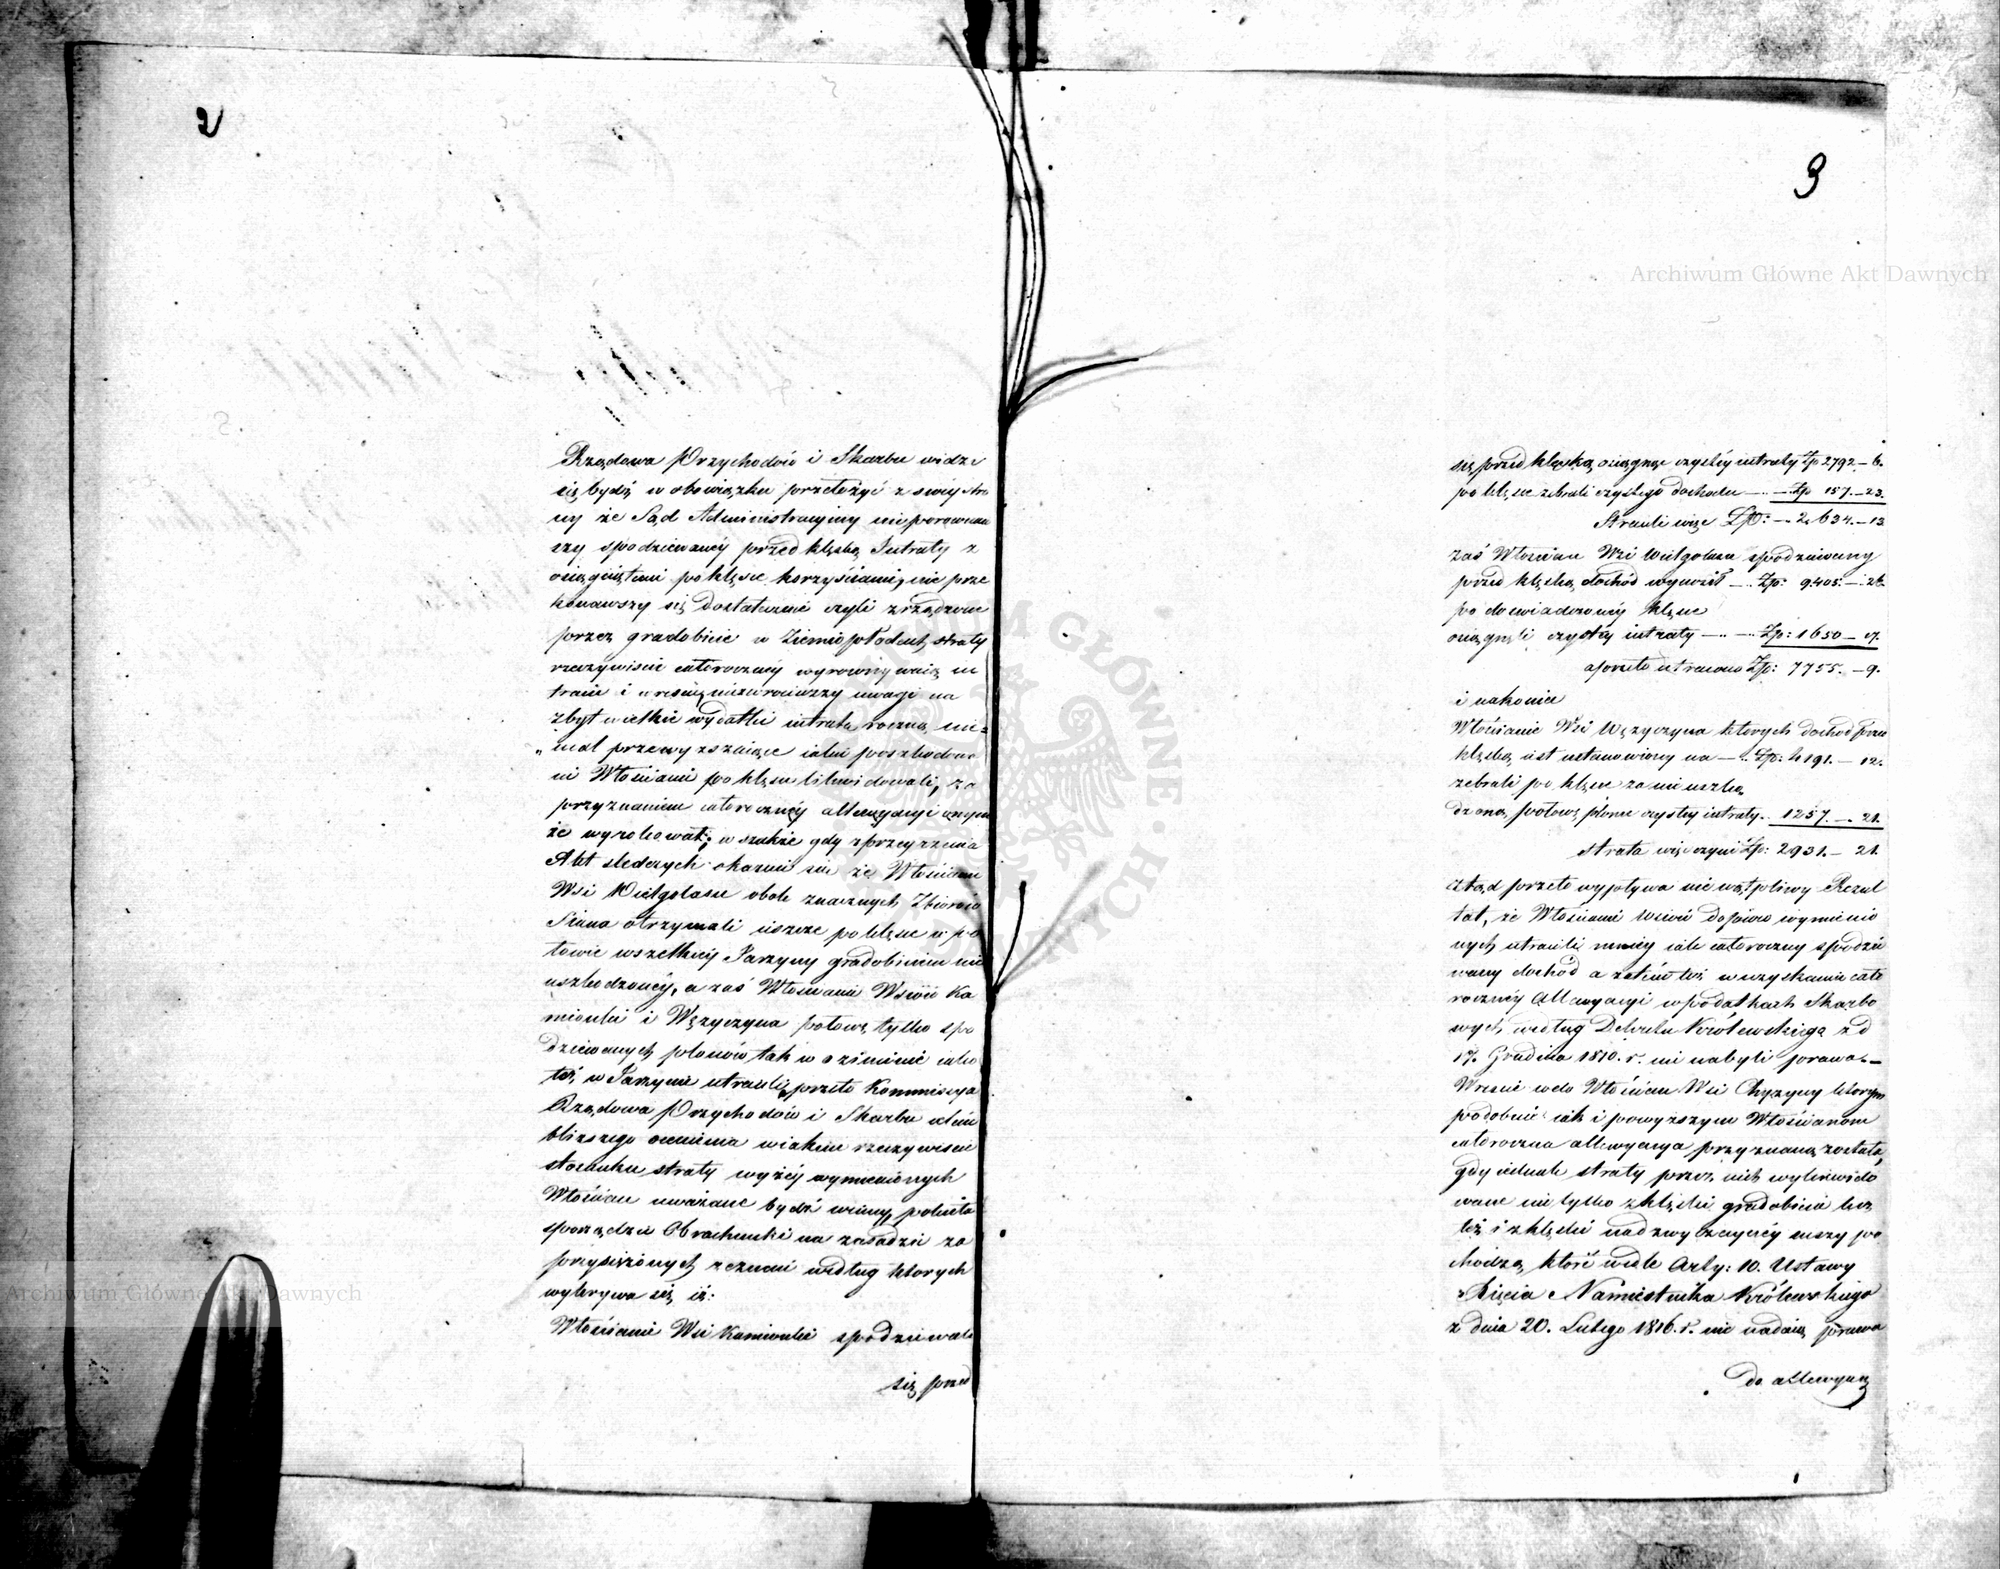 2
Rządowa Przychodów i Skarbu widzi
się bydź w obowiązku przełożyć z swéy stro
ny że Sąd Administracyiny nieporównaw
szy spodziewanéy przed klęską Intraty z
osiągniętemi po klęsce korzyściami, nie prze
konawszy się dostatecznie czyli zrządzone
przez gradobicie w Ziemiopłodach straty
rzeczywiście całorocznéy wyrównywaią in
tracie i wreście niezwróciwszy uwagi na
zbyt wielkie wydatki intratę roczną nie=
„mal przewyższaiące iakie poszkodowa
ni Włościanie po klęsce likwidowali, za
przyznaniem całorocznéy allewyacyi
że wyrokował; wszakże gdy z przeyrzenia
Akt śledczych okazuie się że Włościanie
Wsi Wielgolasu obok znacznych Zbiorów
Siana otrzymali ieszcze po klęsce w po
łowie wszelkiéy Jarzyny gradobiciem nie
uszkodzonéy, a zaś Włościanie Wsiów Ka
mionki i Wężyczyna połowę tylko spo
dziewanych plonów tak w oziminie iako
też w Jarzynie utracili, przeto Kommissya
Rządowa Przychodów i Skarbu celem
bliższego ocenienia w iakim rzeczywiście
stosunku straty wyżéy wymienionych
Włościan uważane bydź winny, poleciła
sporządzić Obrachunki na zasadzie za
przysiężonych zeznań według których
wykrywa się iż:
Włościanie Wsi Kamionki spodziewali
się przed
3
Archiwum Główne Akt Dawnych
się przed klęską osiągnąć czystéy intraty Zp 2792.–6.
po klęsce zebrali czystego dochodu — Zp 157.–23.
Stracili więc Zp: — 2,634.–13
zaś Włościan Wsi Wielgolasu spodziewany
przed klęską dochód wynosił — Zp: 9405.–26
po doświadczonéy klęsce
osiągnęli czystéy intraty — Zp: 1650–17.
a przeto utracono Zp: 7755.–9.
i nakoniec
Włościanie Wsi Wężyczyna których dochód przed
klęską iest ustanowiony na — Zp: 4191.–12.
zebrali po klęsce za nieuszko
dzoną połowę plonu czystéy intraty. 1257.–21.
strata więc czyni Zp: 2931.–21.
ztąd przeto wypływa niewątpliwy Rezul
tat, że Włościanie wsiów dopiero wymienio
nych utracili mniéy iak całoroczny spodzie
wany dochód a zatém téż w uzyskanie cało
rocznéy Allewyacyi w podatkach Skarbo
wych według Dekretu Królewskiego z d
17. Grudnia 1810. r. nie nabyli prawa.—
Wreście co do Włościan Wsi Chyżyny którym
podobnie iak i powyższym Włościanom
całoroczna allewyacya przyznaną została,
gdy iednak straty przez nich wylikwido
wane nie tylko z klęski gradobicia lecz
téż i z klęski nadzwyczaynéy suszy po
chodzą, które wedle Arty: 10. Ustawy
Xięcia Namiestnika Królewskiego
z dnia 20. Lutego 1816. r. nie nadaią prawa
do allewyacyi
Archiwum Główne Akt Dawnych